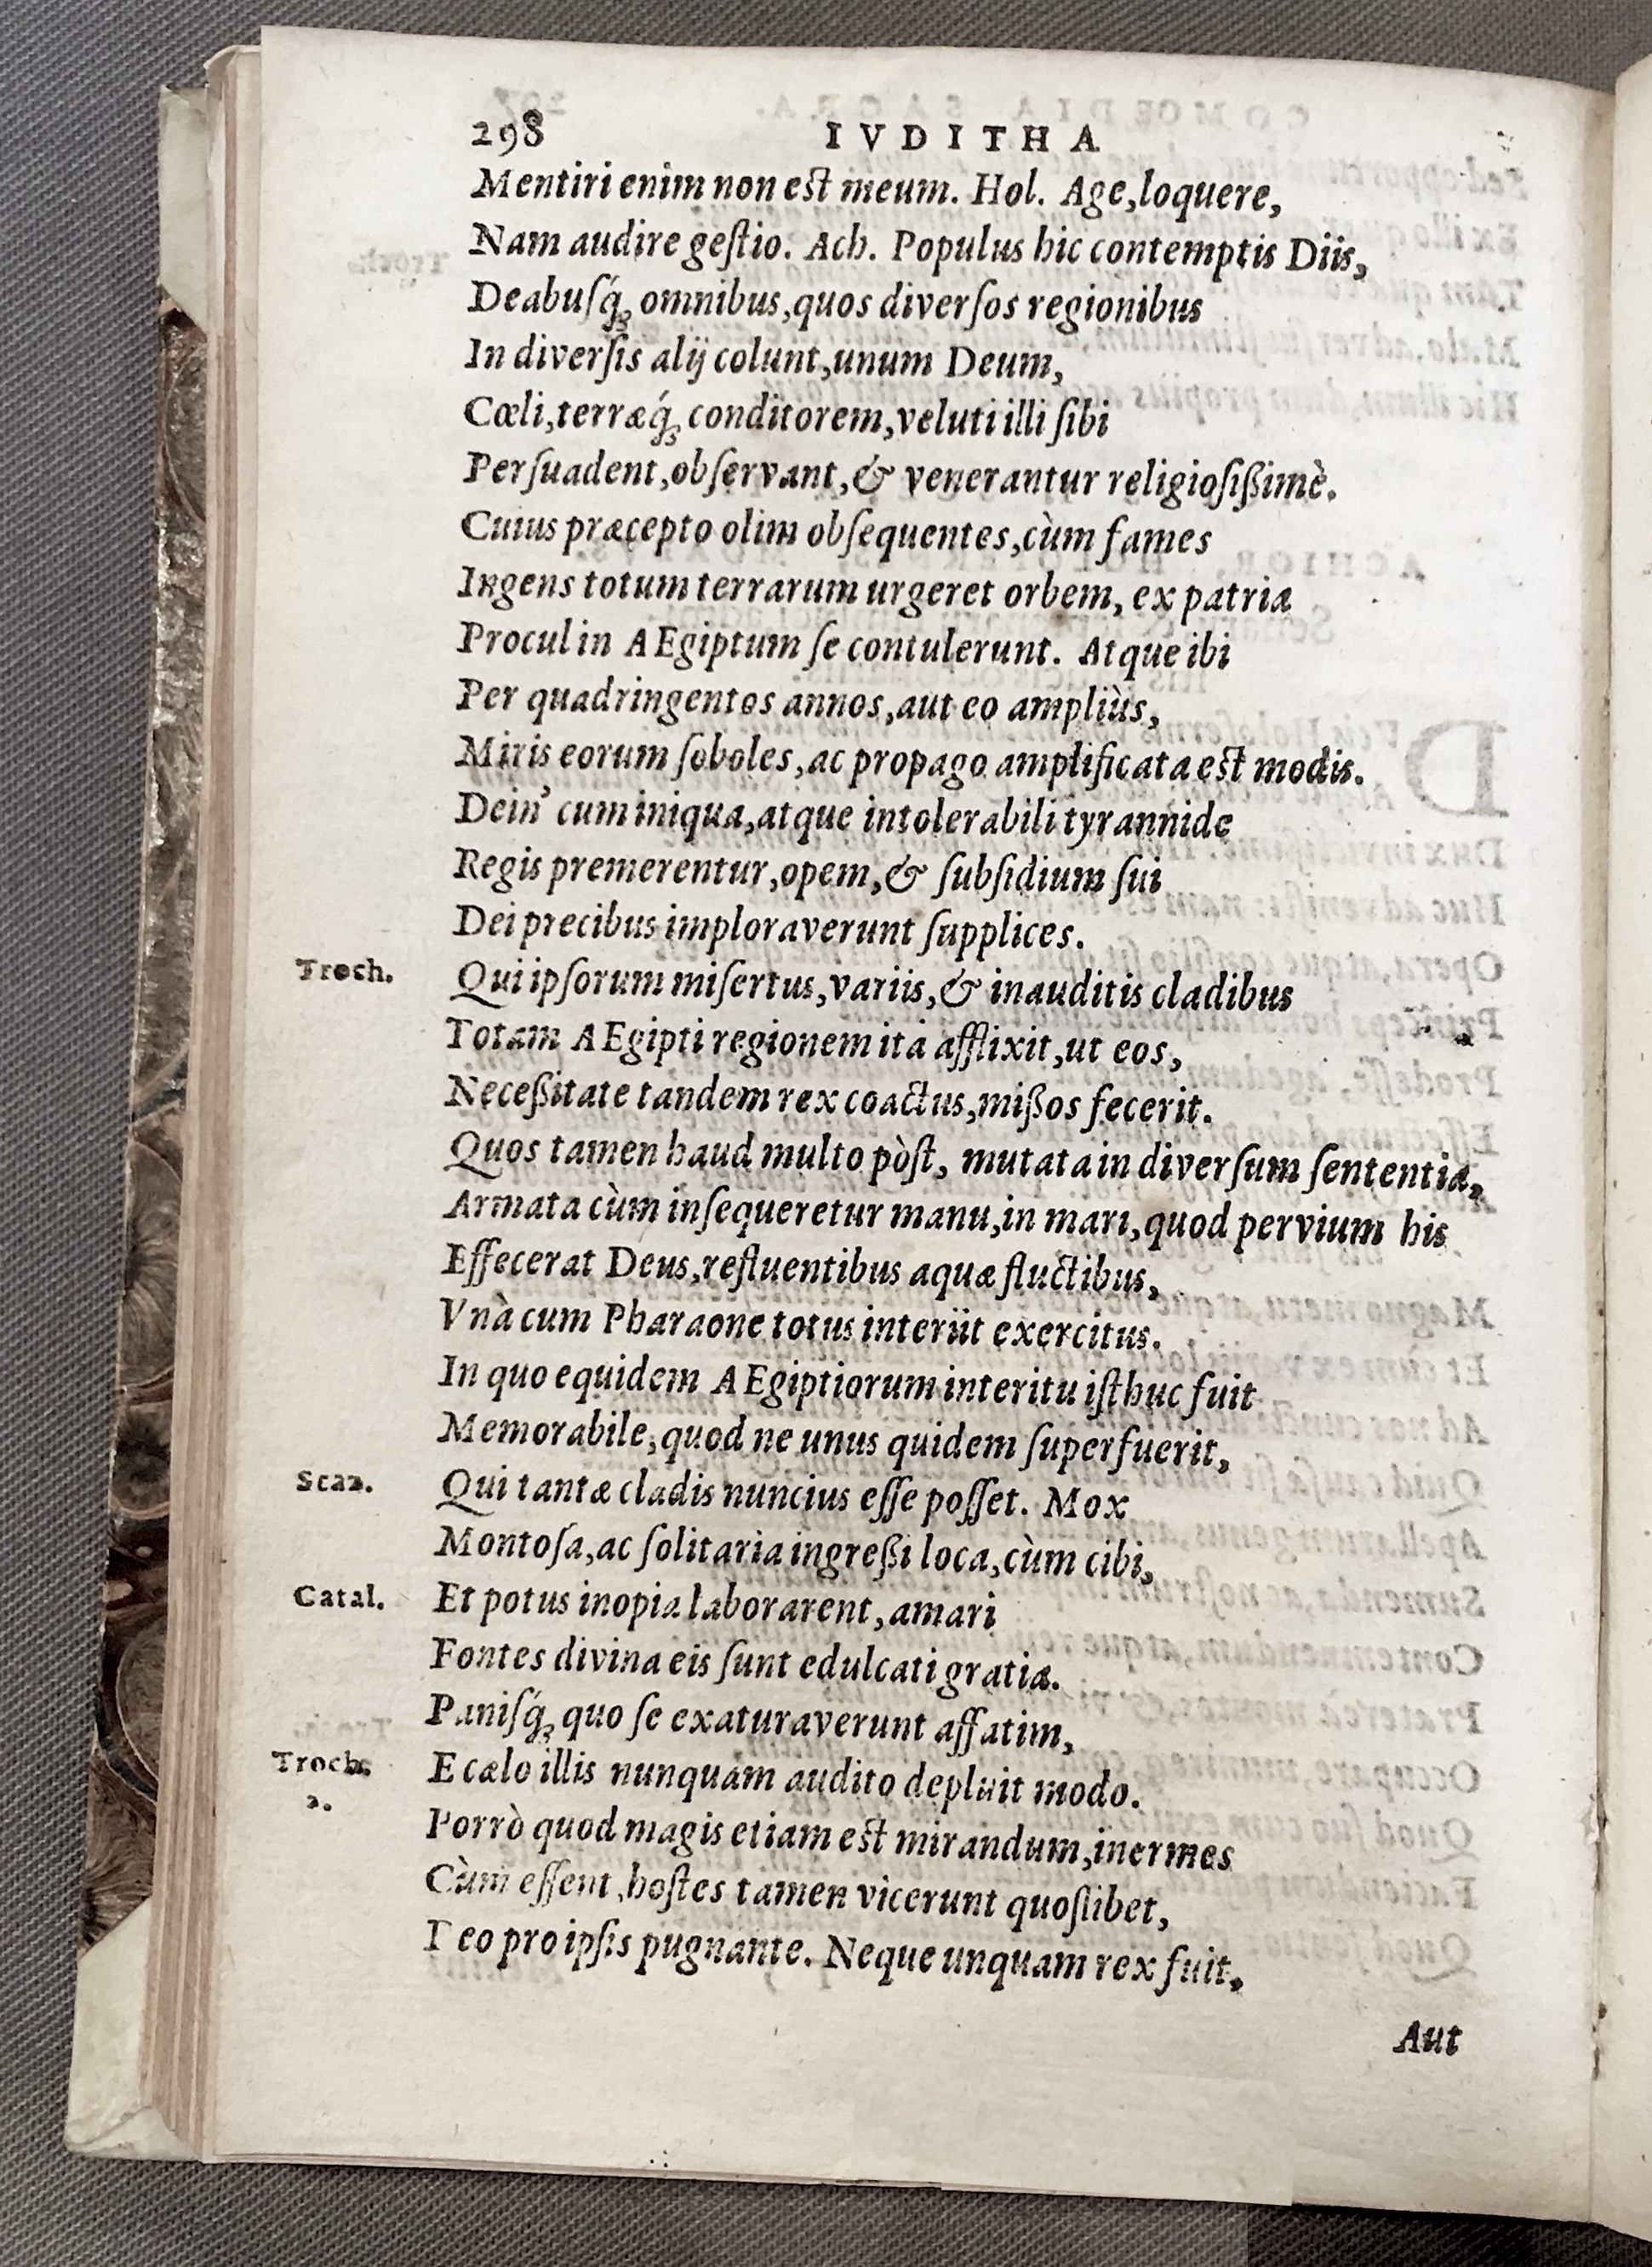 298 IVDITHA
Mentiri enim non est meum. Hol. Age, loquere,
Nam audire geſtio. Ach. Populus hic contemptis Diis,
Deabuſq́ꝫ omnibus, quos diverſos regionibus
In diverſis alij colunt, unum Deum,
Cœli, terræq́ꝫ conditorem, veluti illi ſibi
Perſuadent, obſervant, & venerantur religioſißimè.
Cuius præcepto olim obſequentes, cùm fames
Ingens totum terrarum urgeret orbem, ex patria
Procul in AEgiptum ſe contulerunt. Atque ibi
Per quadringentos annos, aut eo ampliùs,
Miris eorum ſoboles, ac propago amplificata est modis.
Dein' cum iniqua, atque intolerabili tyrannide
Regis premerentur, opem, & ſubſidium ſui
Dei precibus imploraverunt ſupplices.
Troch. Qui ipſorum miſertus, variis, & inauditis cladibus
Totam AEgipti regionem ita afflixit, ut eos,
Neceßitate tandem rex coactus, mißos fecerit.
Quos tamen haud multo pòſt, mutata in diverſum ſententia,
Armata cùm inſequeretur manu, in mari, quod pervium his
Effecerat Deus, refluentibus aquæ fluctibus,
Vnà cum Pharaone totus interiit exercitus.
In quo equidem AEgiptiorum interitu iſthuc fuit
Memorabile, quod ne unus quidem ſuperfuerit,
Scaz. Qui tantæ cladis nuncius eſſe poſſet. Mox
Montoſa, ac ſolitaria ingreßi loca, cùm cibi,
Catal. Et potus inopia laborarent, amari
Fontes divina eis ſunt edulcati gratia.
Paniſq́ꝫ quo ſe exaturaverunt affatim,
Troch. E cælo illis nunquam audito depluit modo.
2.
Porrò quod magis etiam est mirandum, inermes
Cùm eſſent, hoſtes tamen vicerunt quoſlibet,
Deo pro ipſis pugnante. Neque unquam rex fuit,
Aut